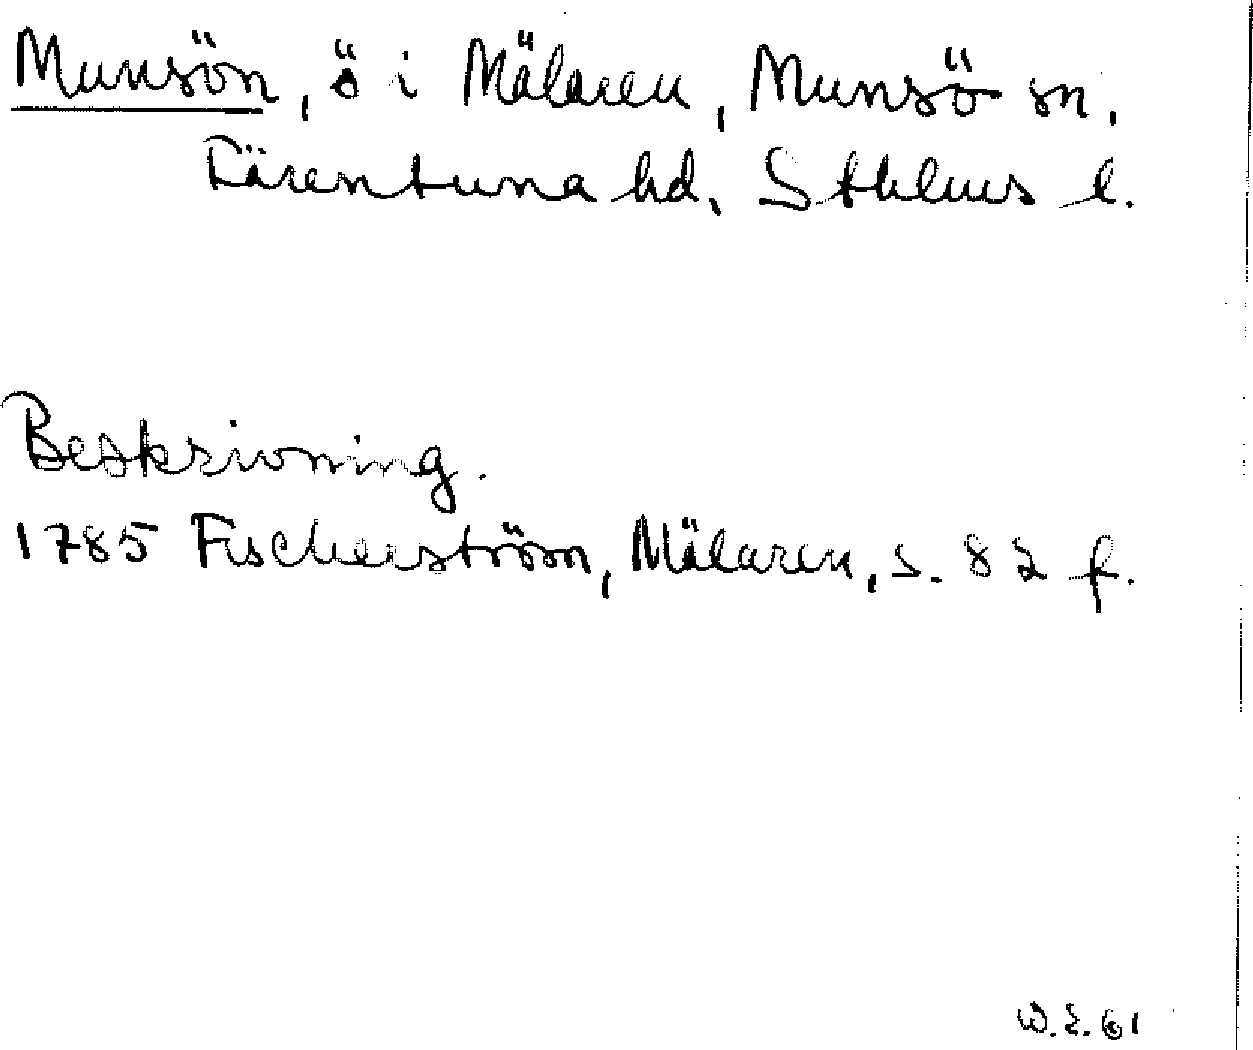 Munsön, ö i Mälaren, Munsö sn,
Färentuna hd, Sthlms l.
Beskrivning.
1785 Fischerström, Mälaren, s. 82 f.
W.E. 61